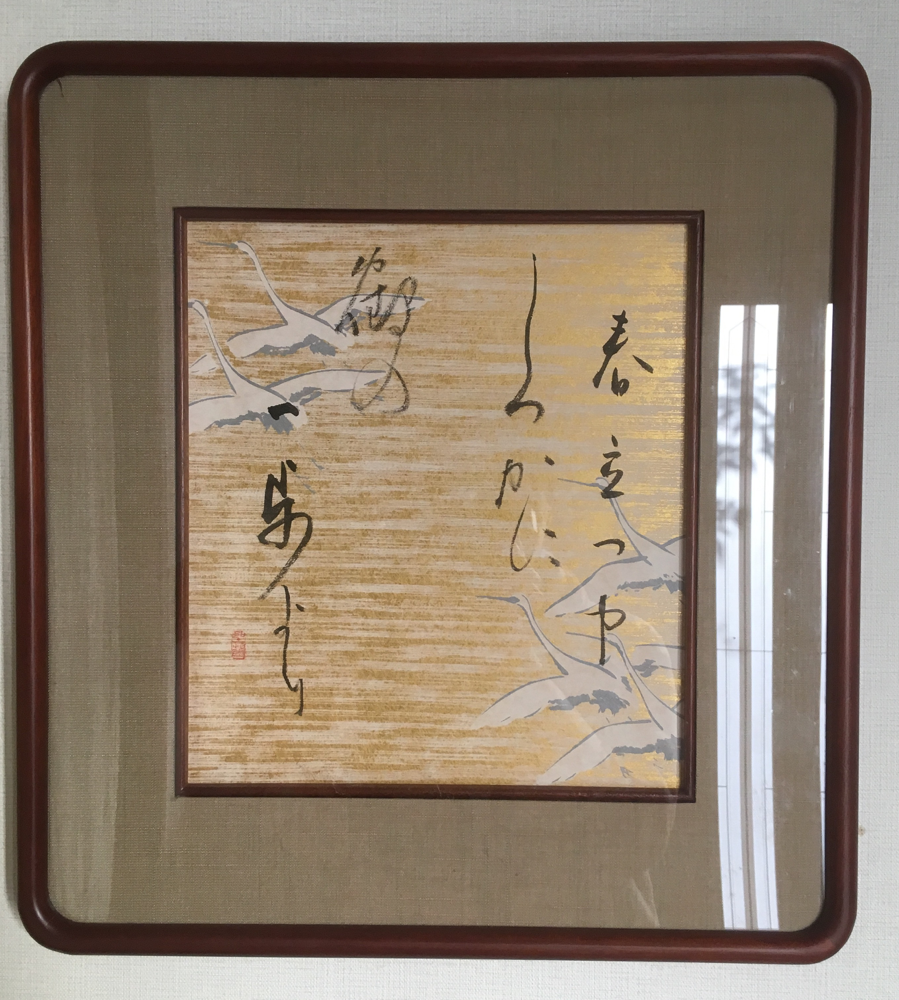 春立つや
しつかに
鶴の
一歩より